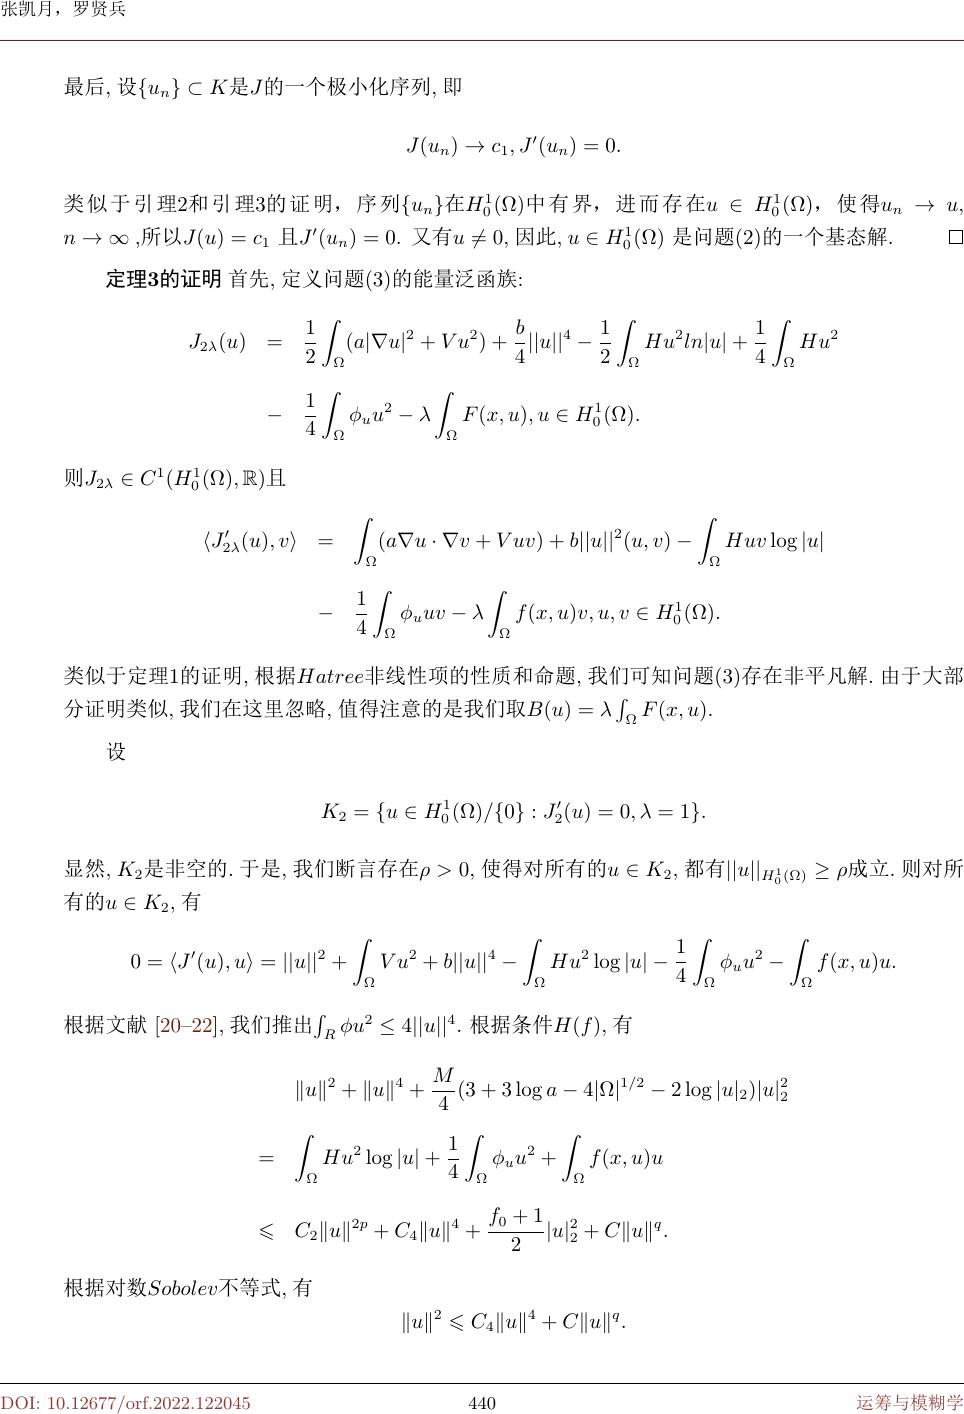 张凯月，罗贤兵
最后, 设{uₙ} ⊂ K是J的一个极小化序列, 即
J(uₙ) → c₁, J′(uₙ) = 0.
类似于引理2和引理3的证明，序列{uₙ}在H₀¹(Ω)中有界，进而存在u ∈ H₀¹(Ω)，使得uₙ → u,
n → ∞ ,所以J(u) = c₁ 且J′(uₙ) = 0. 又有u ≠ 0, 因此, u ∈ H₀¹(Ω) 是问题(2)的一个基态解. □
定理3的证明 首先, 定义问题(3)的能量泛函族:
J_{2λ}(u) = \frac{1}{2} ∫_Ω (a|∇u|² + Vu²) + \frac{b}{4}||u||⁴ − \frac{1}{2} ∫_Ω Hu²ln|u| + \frac{1}{4} ∫_Ω Hu²
− \frac{1}{4} ∫_Ω φ_u u² − λ ∫_Ω F(x, u), u ∈ H₀¹(Ω).
则J_{2λ} ∈ C¹(H₀¹(Ω), ℝ)且
⟨J′_{2λ}(u), v⟩ = ∫_Ω (a∇u · ∇v + Vuv) + b||u||²(u, v) − ∫_Ω Huv log |u|
− \frac{1}{4} ∫_Ω φ_u uv − λ ∫_Ω f(x, u)v, u, v ∈ H₀¹(Ω).
类似于定理1的证明, 根据Hatree非线性项的性质和命题, 我们可知问题(3)存在非平凡解. 由于大部
分证明类似, 我们在这里忽略, 值得注意的是我们取B(u) = λ ∫_Ω F(x, u).
设
K₂ = {u ∈ H₀¹(Ω)/{0} : J′₂(u) = 0, λ = 1}.
显然, K₂是非空的. 于是, 我们断言存在ρ > 0, 使得对所有的u ∈ K₂, 都有||u||_{H₀¹(Ω)} ≥ ρ成立. 则对所
有的u ∈ K₂, 有
0 = ⟨J′(u), u⟩ = ||u||² + ∫_Ω Vu² + b||u||⁴ − ∫_Ω Hu² log |u| − \frac{1}{4} ∫_Ω φ_u u² − ∫_Ω f(x, u)u.
根据文献 [20–22], 我们推出∫_R φu² ≤ 4||u||⁴. 根据条件H(f), 有
‖u‖² + ‖u‖⁴ + \frac{M}{4}(3 + 3 log a − 4|Ω|^{1/2} − 2 log |u|₂)|u|₂²
= ∫_Ω Hu² log |u| + \frac{1}{4} ∫_Ω φ_u u² + ∫_Ω f(x, u)u
⩽ C₂‖u‖^{2p} + C₄‖u‖⁴ + \frac{f₀ + 1}{2}|u|₂² + C‖u‖^q.
根据对数Sobolev不等式, 有
‖u‖² ⩽ C₄‖u‖⁴ + C‖u‖^q.
DOI: 10.12677/orf.2022.122045 440 运筹与模糊学